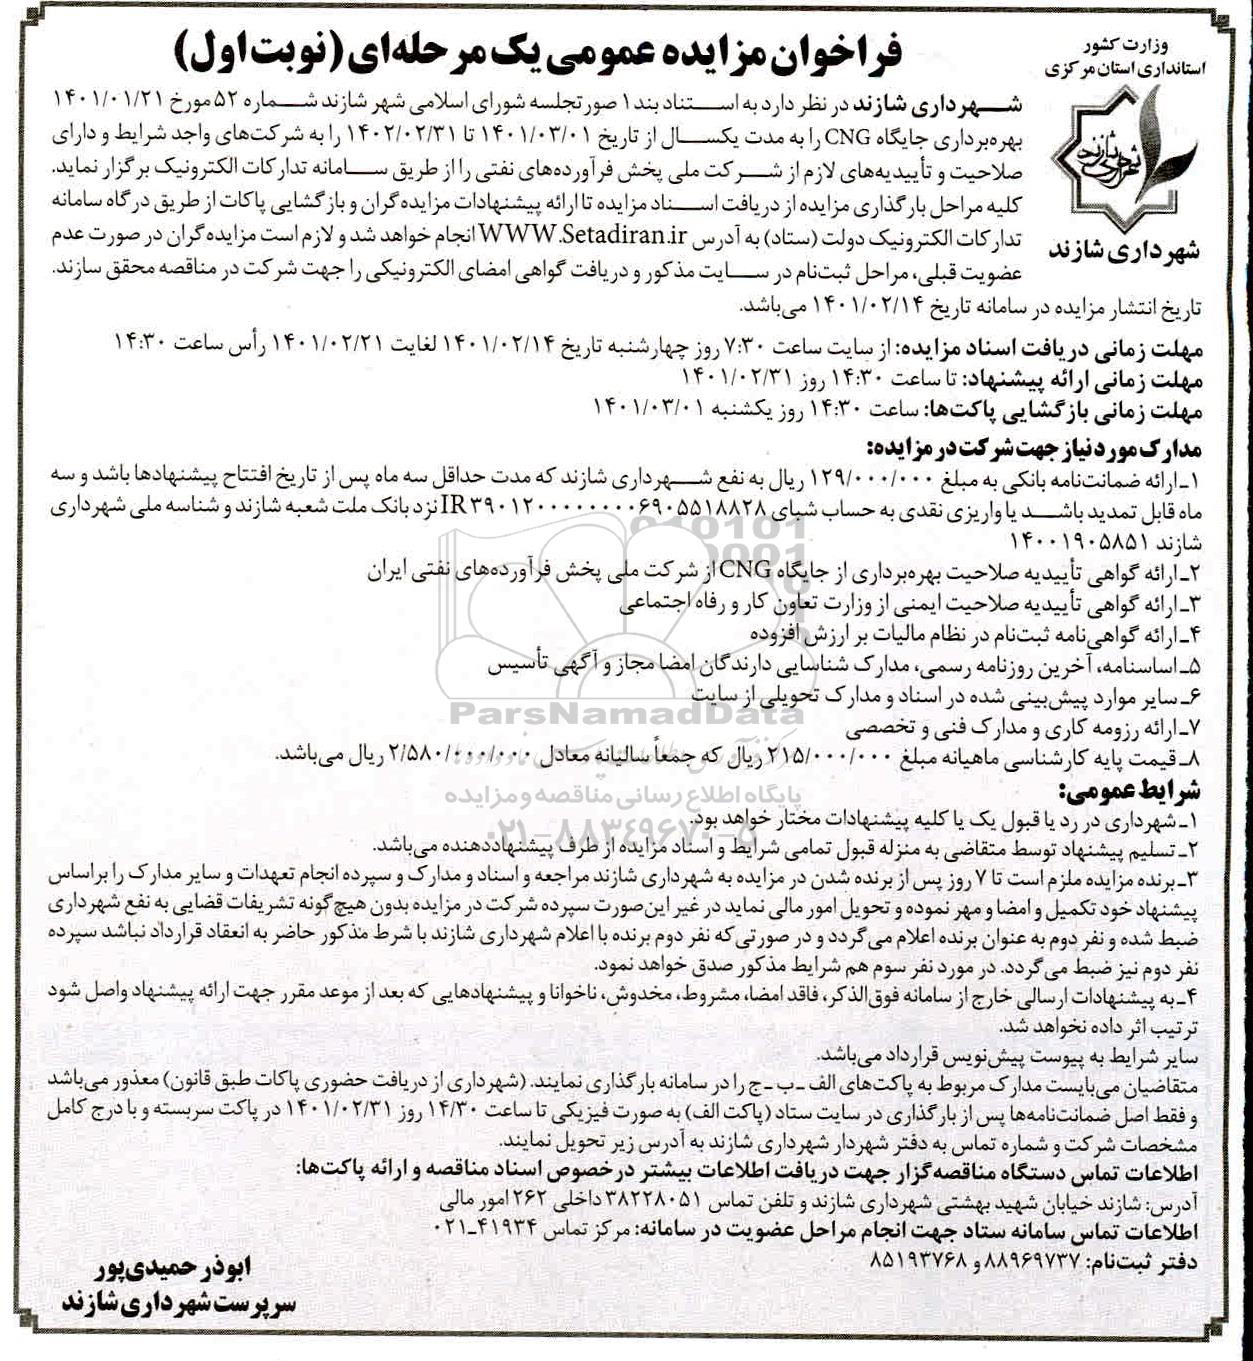 وزارت کشور
استانداری استان مرکزی
شهرداری شازند
فراخوان مزایده عمومی یک مرحله‌ای (نوبت اول)
شهرداری شازند در نظر دارد به استناد بند ۱ صورتجلسه شورای اسلامی شهر شازند شماره ۵۲ مورخ ۱۴۰۱/۰۱/۲۱
بهره‌برداری جایگاه CNG را به مدت یکسال از تاریخ ۱۴۰۱/۰۳/۰۱ تا ۱۴۰۲/۰۲/۳۱ را به شرکت‌های واجد شرایط و دارای
صلاحیت و تأییدیه‌های لازم از شرکت ملی پخش فرآورده‌های نفتی را از طریق سامانه تدارکات الکترونیک برگزار نماید.
کلیه مراحل بارگذاری مزایده از دریافت اسناد مزایده تا ارائه پیشنهادات مزایده‌گران و بازگشایی پاکات از طریق درگاه سامانه
تدارکات الکترونیک دولت (ستاد) به آدرس WWW.Setadiran.ir انجام خواهد شد و لازم است مزایده‌گران در صورت عدم
عضویت قبلی، مراحل ثبت‌نام در سایت مذکور و دریافت گواهی امضای الکترونیکی را جهت شرکت در مناقصه محقق سازند.
تاریخ انتشار مزایده در سامانه تاریخ ۱۴۰۱/۰۲/۱۴ می‌باشد.
مهلت زمانی دریافت اسناد مزایده: از سایت ساعت ۷:۳۰ روز چهارشنبه تاریخ ۱۴۰۱/۰۲/۱۴ لغایت ۱۴۰۱/۰۲/۲۱ رأس ساعت ۱۴:۳۰
مهلت زمانی ارائه پیشنهاد: تا ساعت ۱۴:۳۰ روز ۱۴۰۱/۰۲/۳۱
مهلت زمانی بازگشایی پاکت‌ها: ساعت ۱۴:۳۰ روز یکشنبه ۱۴۰۱/۰۳/۰۱
مدارک مورد نیاز جهت شرکت در مزایده:
۱ـ ارائه ضمانت‌نامه بانکی به مبلغ ۱۲۹/۰۰۰/۰۰۰ ریال به نفع شهرداری شازند که مدت حداقل سه ماه پس از تاریخ افتتاح پیشنهادها باشد و سه
ماه قابل تمدید باشد یا واریزی نقدی به حساب شبای IR۳۹۰۱۲۰۰۰۰۰۰۰۰۰۶۹۰۵۵۱۸۸۲۸ نزد بانک ملت شعبه شازند و شناسه ملی شهرداری
شازند ۱۴۰۰۱۹۰۵۸۵۱
۲ـ ارائه گواهی تأییدیه صلاحیت بهره‌برداری از جایگاه CNG از شرکت ملی پخش فرآورده‌های نفتی ایران
۳ـ ارائه گواهی تأییدیه صلاحیت ایمنی از وزارت تعاون کار و رفاه اجتماعی
۴ـ ارائه گواهی‌نامه ثبت‌نام در نظام مالیات بر ارزش افزوده
۵ـ اساسنامه، آخرین روزنامه رسمی، مدارک شناسایی دارندگان امضا مجاز و آگهی تأسیس
۶ـ سایر موارد پیش‌بینی شده در اسناد و مدارک تحویلی از سایت
ParsNamadData
۷ـ ارائه رزومه کاری و مدارک فنی و تخصصی
۸ـ قیمت پایه کارشناسی ماهیانه مبلغ ۲۱۵/۰۰۰/۰۰۰ ریال که جمعاً سالیانه معادل ۲/۵۸۰/۰۰۰/۰۰۰ ریال می‌باشد.
پایگاه اطلاع رسانی مناقصه و مزایده
شرایط عمومی:
۱ـ شهرداری در رد یا قبول یک یا کلیه پیشنهادات مختار خواهد بود.
۰۲۱-۸۸۳۴۹۶۷۰-۵
۲ـ تسلیم پیشنهاد توسط متقاضی به منزله قبول تمامی شرایط و اسناد مزایده از طرف پیشنهاددهنده می‌باشد.
۳ـ برنده مزایده ملزم است تا ۷ روز پس از برنده شدن در مزایده به شهرداری شازند مراجعه و اسناد و مدارک و سپرده انجام تعهدات و سایر مدارک را براساس
پیشنهاد خود تکمیل و امضا و مهر نموده و تحویل امور مالی نماید در غیر این‌صورت سپرده شرکت در مزایده بدون هیچ‌گونه تشریفات قضایی به نفع شهرداری
ضبط شده و نفر دوم به عنوان برنده اعلام می‌گردد و در صورتی‌که نفر دوم برنده با اعلام شهرداری شازند با شرط مذکور حاضر به انعقاد قرارداد نباشد سپرده
نفر دوم نیز ضبط می‌گردد. در مورد نفر سوم هم شرایط مذکور صدق خواهد نمود.
۴ـ به پیشنهادات ارسالی خارج از سامانه فوق‌الذکر، فاقد امضا، مشروط، مخدوش، ناخوانا و پیشنهادهایی که بعد از موعد مقرر جهت ارائه پیشنهاد واصل شود
ترتیب اثر داده نخواهد شد.
سایر شرایط به پیوست پیش‌نویس قرارداد می‌باشد.
متقاضیان می‌بایست مدارک مربوط به پاکت‌های الف ـ ب ـ ج را در سامانه بارگذاری نمایند. (شهرداری از دریافت حضوری پاکات طبق قانون) معذور می‌باشد
و فقط اصل ضمانت‌نامه‌ها پس از بارگذاری در سایت ستاد (پاکت الف) به صورت فیزیکی تا ساعت ۱۴/۳۰ روز ۱۴۰۱/۰۲/۳۱ در پاکت سربسته و با درج کامل
مشخصات شرکت و شماره تماس به دفتر شهردار شهرداری شازند به آدرس زیر تحویل نمایند.
اطلاعات تماس دستگاه مناقصه‌گزار جهت دریافت اطلاعات بیشتر درخصوص اسناد مناقصه و ارائه پاکت‌ها:
آدرس: شازند خیابان شهید بهشتی شهرداری شازند و تلفن تماس ۳۸۲۲۸۰۵۱ داخلی ۲۶۲ امور مالی
اطلاعات تماس سامانه ستاد جهت انجام مراحل عضویت در سامانه: مرکز تماس ۴۱۹۳۴ـ۰۲۱
دفتر ثبت‌نام: ۸۸۹۶۹۷۳۷ و ۸۵۱۹۳۷۶۸
ابوذر حمیدی‌پور
سرپرست شهرداری شازند